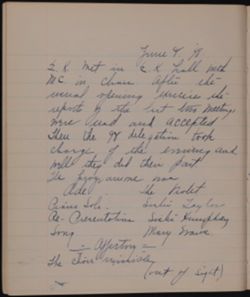 June 9,
E.R. Met in E.R. Hall with
MC in chair. After the
usual opening exercise the
reports of the last two Meetings
were read and accepted
Then the
delegation took
charge of the evening and
well they did their part
The programme was
The Violet
Piano Solo. Sadie Taylor
Re-Presentation Sadie Humphrey
Song Mary
The
(out of sight)